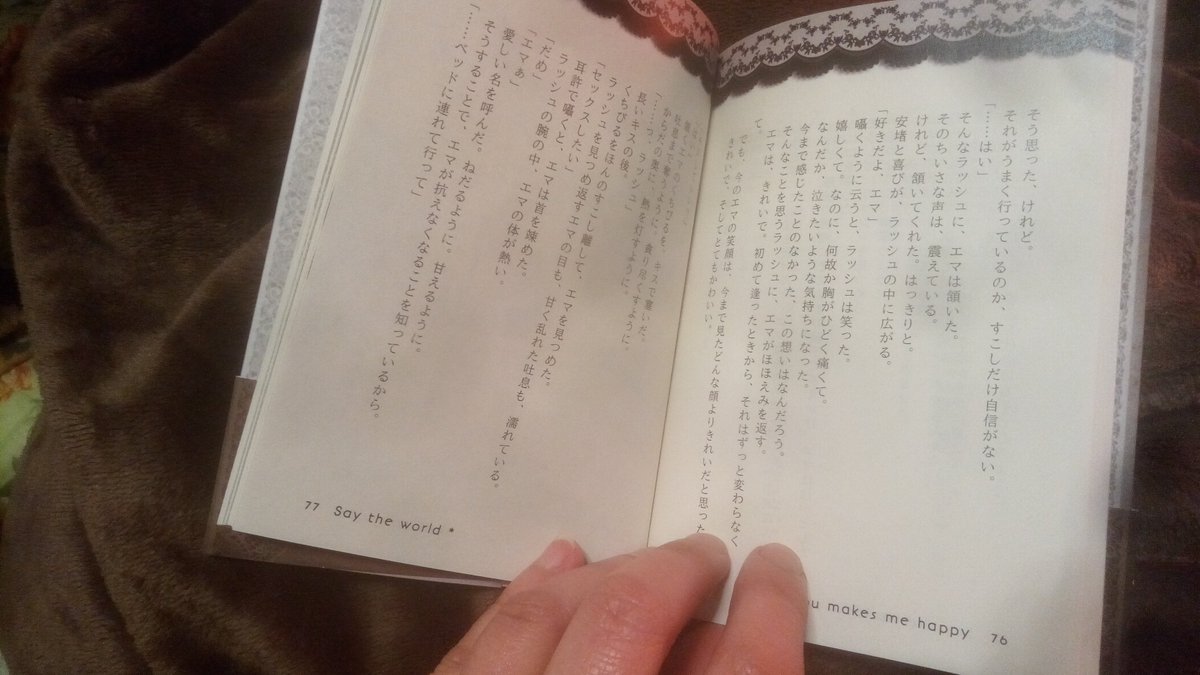 そう思った、けれど。
それがうまく行っているのか、すこしだけ自信がない。
「……はい」
そんなラッシュに、エマは頷いた。
そのちいさな声は、震えている。
けれど、頷いてくれた。はっきりと。
安堵と喜びが、ラッシュの中に広がる。
「好きだよ、エマ」
囁くように云うと、ラッシュは笑った。
嬉しくて。なのに、何故か胸がひどく痛くて。
なんだか、泣きたいような気持ちになった。
今まで感じたことのなかった、この想いはなんだろう。
そんなことを思うラッシュに、エマがほほえみを返す。
エマは、きれいで。初めて逢ったときから、それはずっと変わらなく
て。
でも、今のエマの笑顔は、今まで見たどんな顔よりきれいだと思った
きれいで、そしてとてもかわいい。
ou makes me happy 76
のくちびるを、キスで塞いだ。
吐息まで奪うように、貪り尽くすように。
からだの奥に、熱を灯すように。
「……っ、ラッシュ」
長いキスの後。
くちびるをほんのすこし離して、エマを見つめた。
ラッシュを見つめ返すエマの目も、甘く乱れた吐息も、濡れている。
「セックスしたい」
耳許で囁くと、エマは首を竦めた。
ラッシュの腕の中、エマの体が熱い。
「だめ」
「エマぁ」
愛しい名を呼んだ。ねだるように。甘えるように。
そうすることで、エマが抗えなくなることを知っているから。
「……ベッドに連れて行って」
77 Say the world *